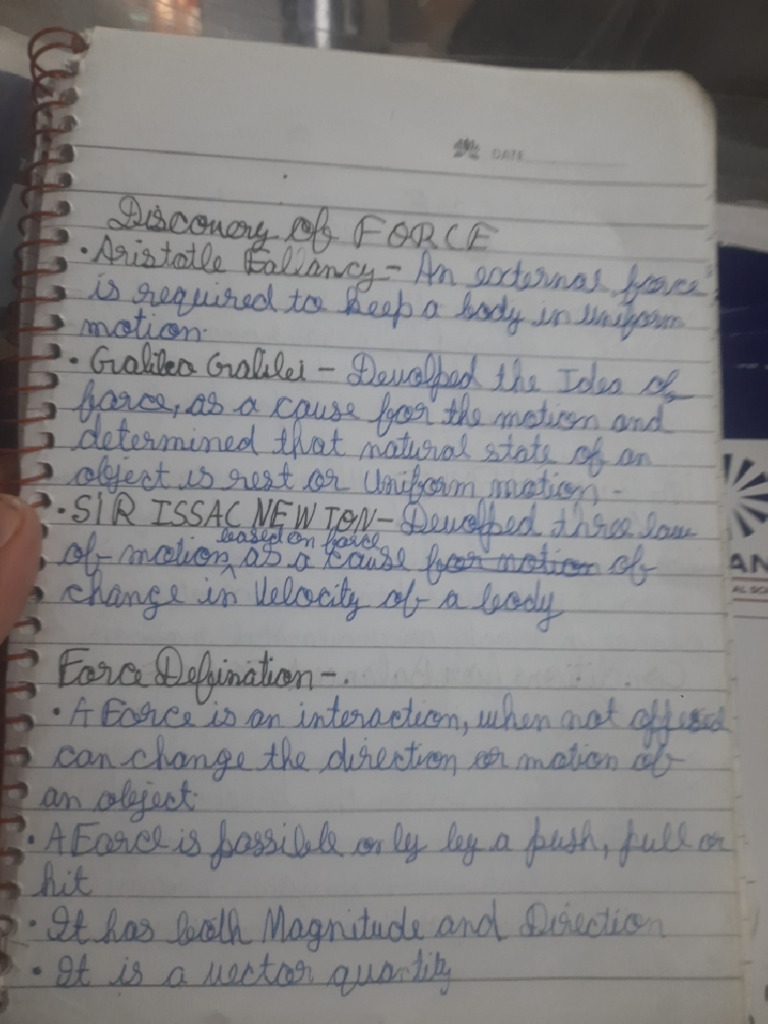 DATE
Discovery of FORCE
• Aristotle Fallancy - An external force
is required to keep a body in uniform
motion.
• Galileo Galilei - Devolped the Idea of
force, as a cause for the motion and
determined that natural state of an
object is rest or Uniform motion -
• SIR ISSAC NEWTON - Devolped three law
based on force
of motion, as a cause for motion of
change in Velocity of a body
Force Defination -.
• A Force is an interaction, when not
can change the direction or motion of
an object.
• A Force is possible only by a push, pull or
hit
• It has both Magnitude and Direction
• It is a vector quantity
AN